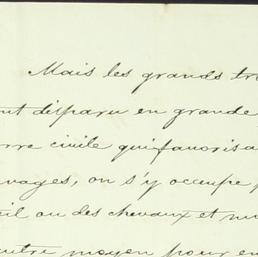 Mais les grands tr
ont disparu en grande
rre civile qui favorisa
vages, on s'y occupe p
eil ou des chevaux et mu
autre moyen pour en